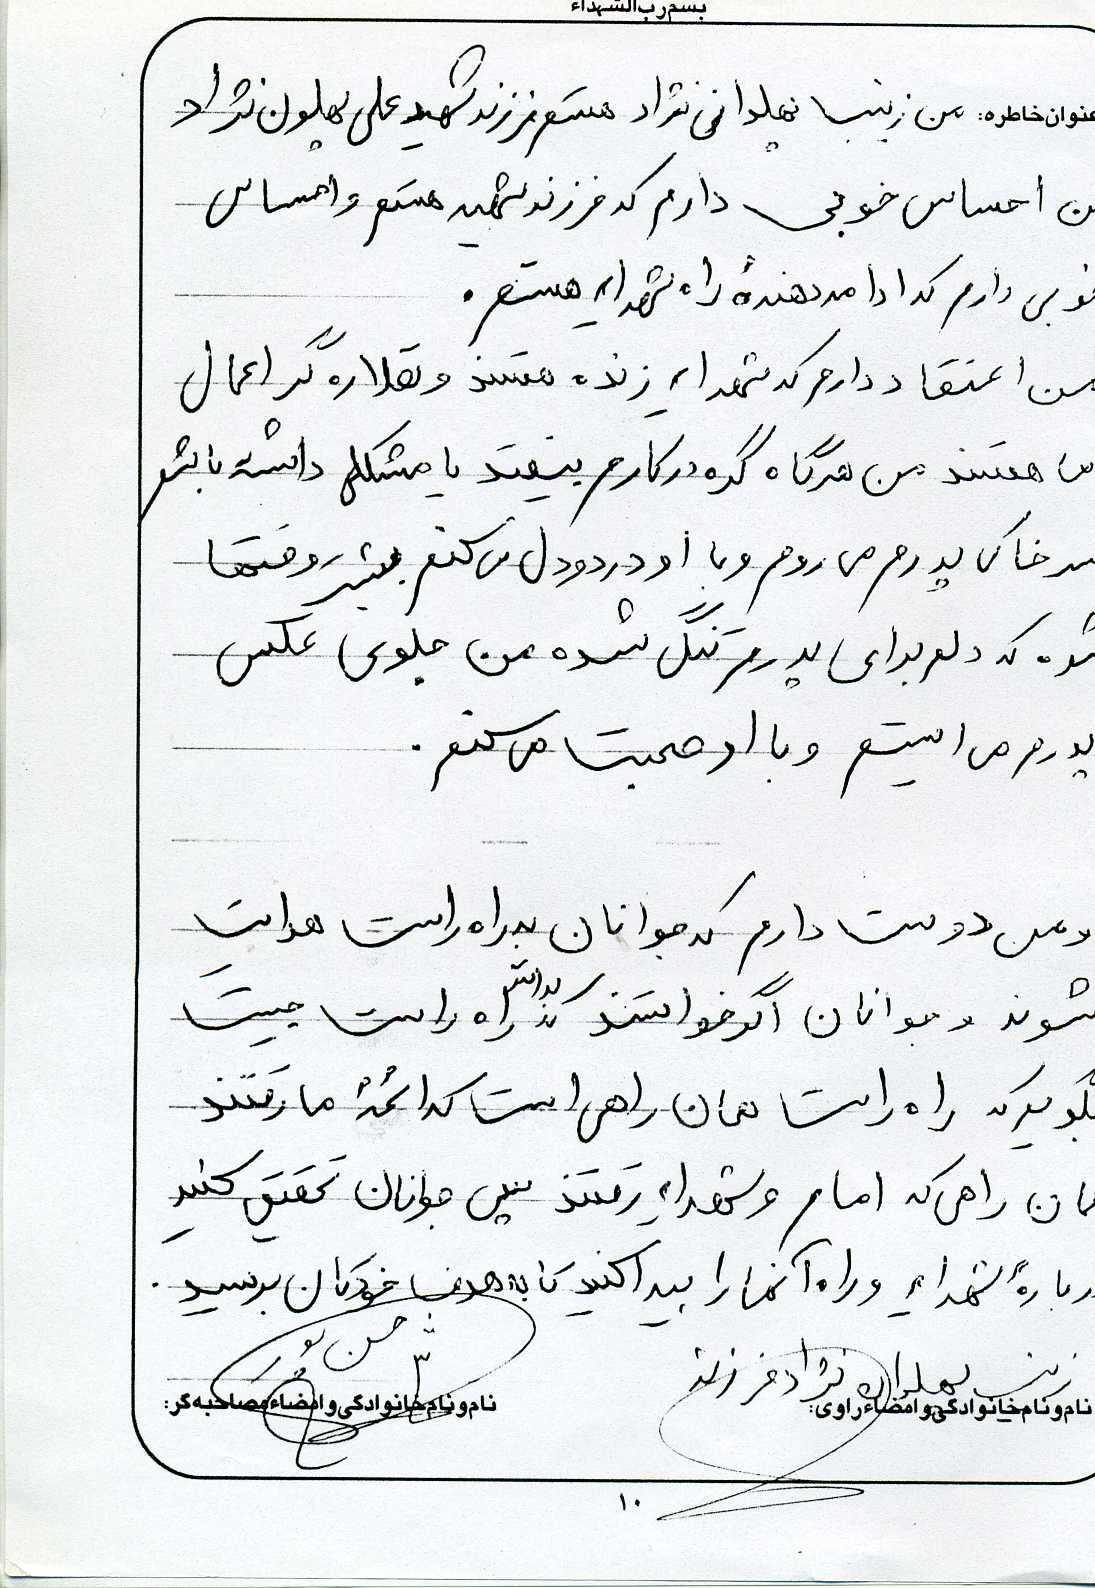 بسم رب الشهداء
عنوان خاطره: من زینب پهلوانی نژاد هستم فرزند شهید علی پهلون نژاد
من احساس خوبی دارم که فرزند شهید هستم و احساس
خوبی دارم که ادامه دهندهٔ راه شهدا هستم.
من اعتقاد دارم که شهدا زنده هستند و نظاره گر اعمال
ما هستند من هرگاه گره در کارم بیفتد یا مشکلی داشته باشم
سر خاک پدرم می روم و با او درد و دل می کنم بیشتر وقتها
شده که دلم برای پدرم تنگ شده من جلوی عکس
پدرم می ایستم و با او صحبت می کنم.
و من دوست دارم که جوانان به راه راست هدایت
شوند و جوانان اگر خواستند که بدانند راه راست چیست
بگویم که راه راست همان راهی است که ائمهٔ ما رفتند
همان راهی که امام و شهدا رفتند پس جوانان تحقیق کنید
دربارهٔ شهدا و راه آنها را پیدا کنید تا به هدف خودتان برسید.
زینب پهلوان نژاد فرزند
حسن پور
نام و نام خانوادگی و امضاء راوی:
نام و نام خانوادگی و امضاء مصاحبه گر:
۱۰